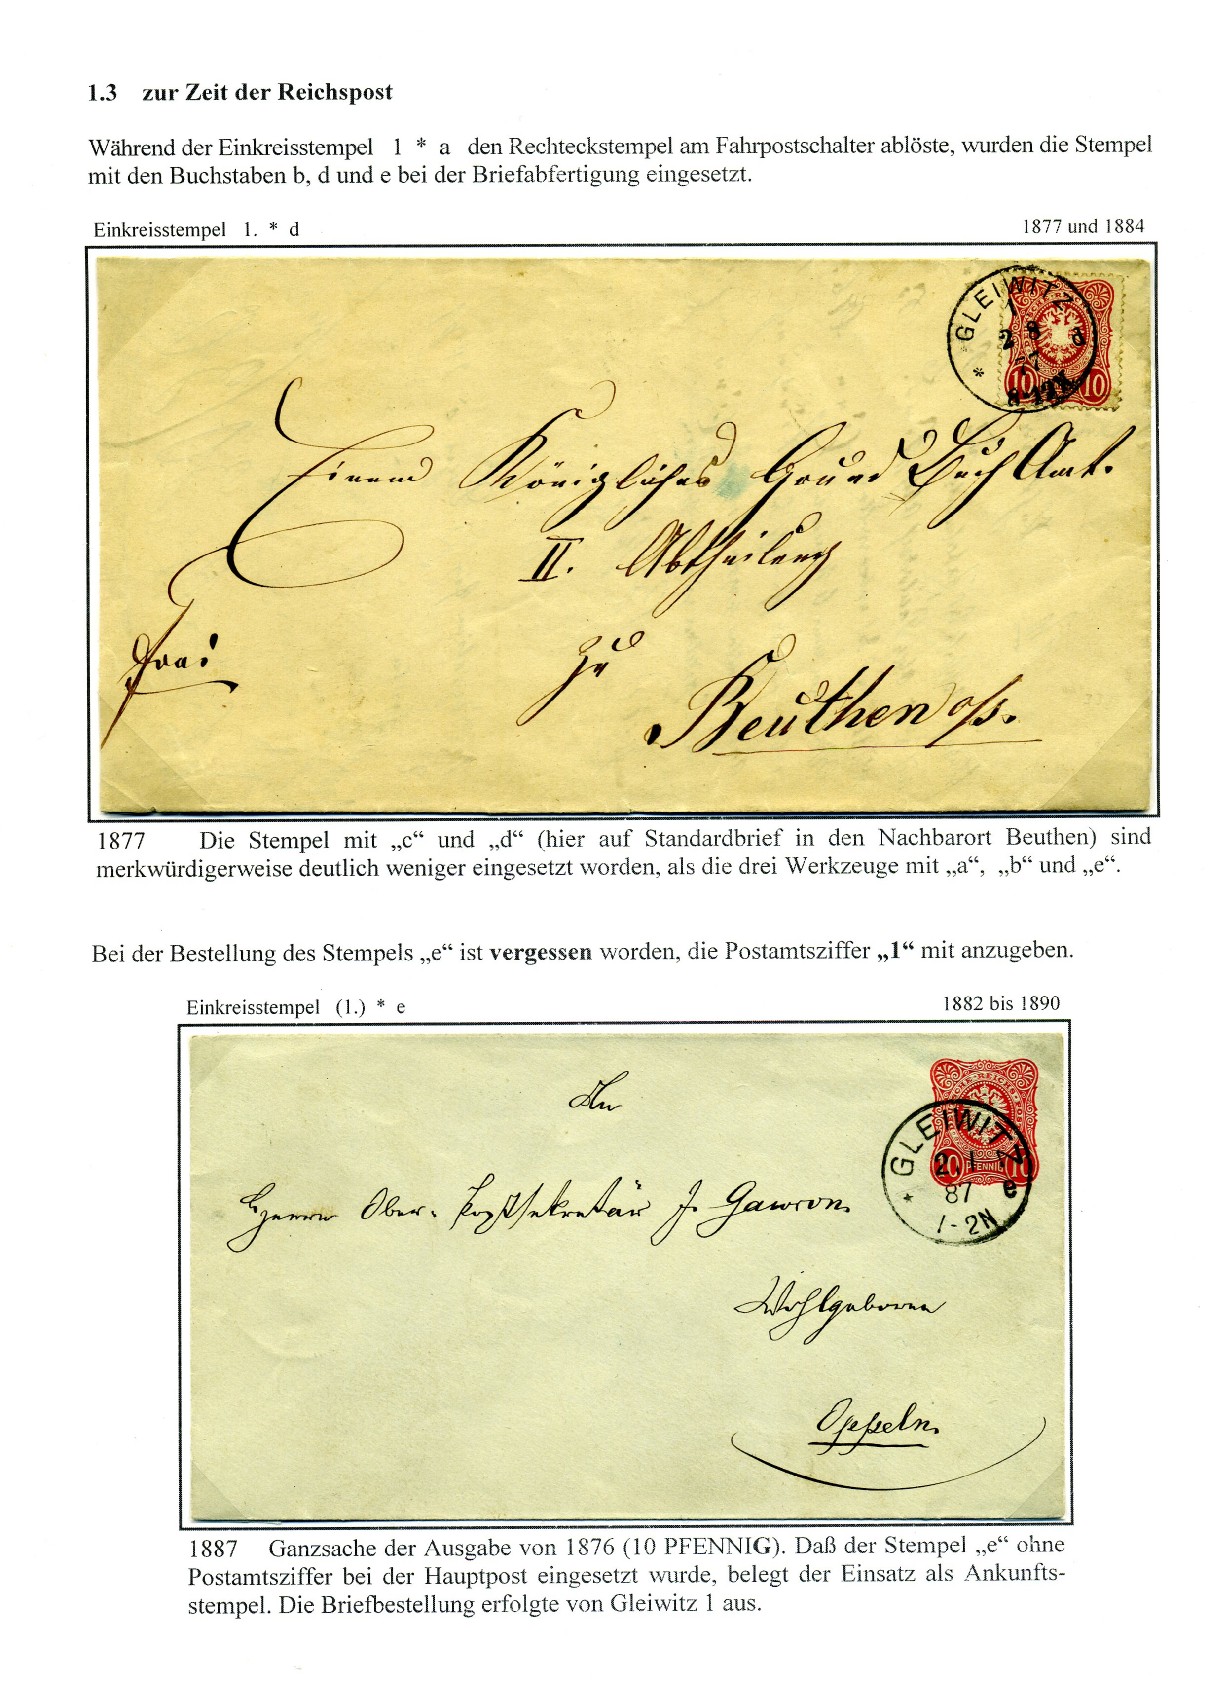 1.3 zur Zeit der Reichspost
Während der Einkreisstempel 1 * a den Rechteckstempel am Fahrpostschalter ablöste, wurden die Stempel
mit den Buchstaben b, d und e bei der Briefabfertigung eingesetzt.
Einkreisstempel 1. * d
1877 und 1884
GLEIWITZ
1
2 8 d
77
*
10 10
Einem Königliches Grund Buch Amt.
II. Abtheilung
frei
zu
Beuthen o/s.
1877 Die Stempel mit „c“ und „d“ (hier auf Standardbrief in den Nachbarort Beuthen) sind
merkwürdigerweise deutlich weniger eingesetzt worden, als die drei Werkzeuge mit „a“, „b“ und „e“.
Bei der Bestellung des Stempels „e“ ist vergessen worden, die Postamtsziffer „1“ mit anzugeben.
Einkreisstempel (1.) * e
1882 bis 1890
An
GLEIWITZ
10 PFENNIG 10
87 e
* 1-2N
Herrn Ober-Postsekretär J. Gawron.
Wohlgeboren
Oppeln.
1887 Ganzsache der Ausgabe von 1876 (10 PFENNIG). Daß der Stempel „e“ ohne
Postamtsziffer bei der Hauptpost eingesetzt wurde, belegt der Einsatz als Ankunfts-
stempel. Die Briefbestellung erfolgte von Gleiwitz 1 aus.